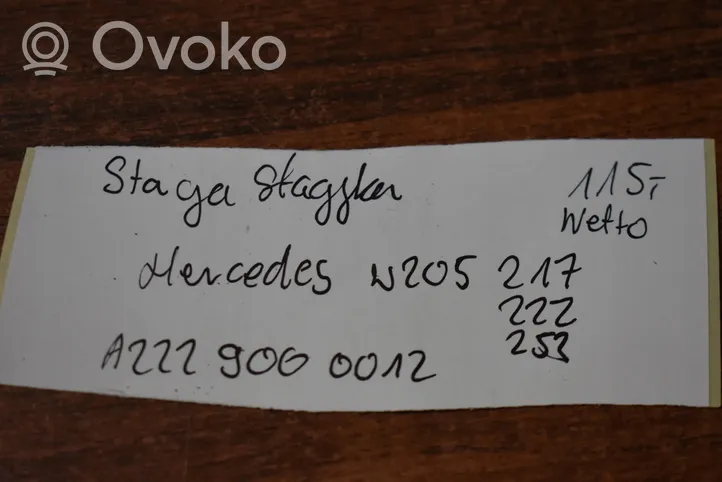 Ovoko
Staga 115,-
Netto
Mercedes W205 217
222
253
A222 900 0012